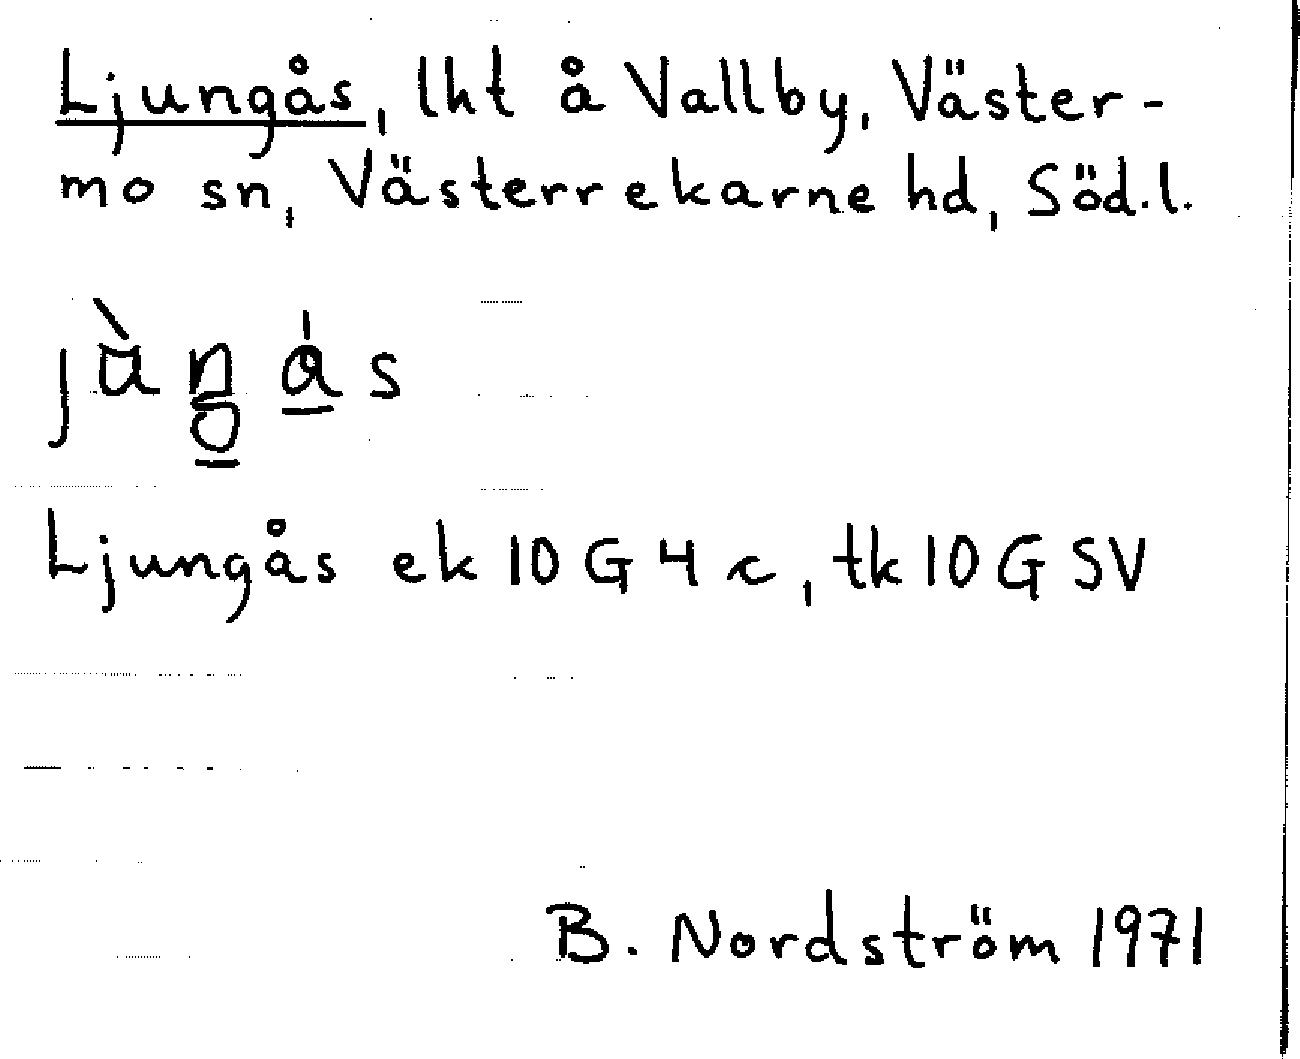 Ljungås, lht å Vallby, Väster-
mo sn, Västerrekarne hd, Söd.l.
Ljungås ek 10 G 4 c, tk 10 G SV
B. Nordström 1971